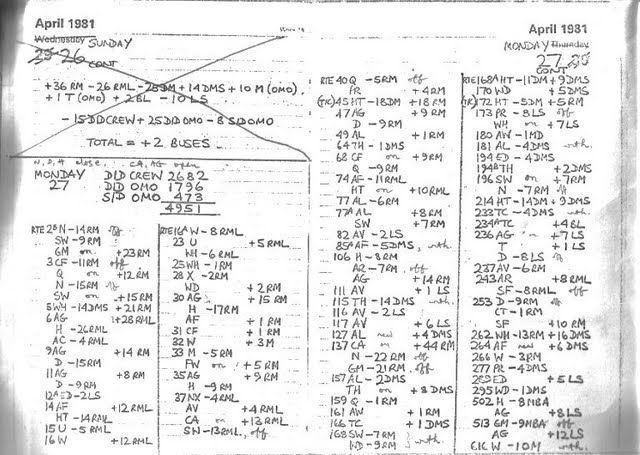 April 1981
Wednesday SUNDAY
26 CONT
+36 RM - 26 RML - 25DM + 14 DMS + 10 M (OMO).
+ 1 T (OMO) + 2 BL - 10 LS
- 15 D/D CREW + 25 D/D OMO - 8 S/D OMO
TOTAL = +2 BUSES
N.D.H close. CA, AG open
MONDAY D/D CREW 2682
27 D/D OMO 1796
S/D OMO 473
4951
RTE 2B N -14RM off
SW -9RM
GM on +23RM
3 CF -11RM off
Q on +12RM
N -15RM
SW on +15RM
5 WH -14DMS +21RM
6 AG +28RML
H -26RML
AC -4RML
9 AG +14 RM
D -15RM
11 AG +8RM
D -9RM
12A ED -2LS
14 AF +12RML
HT -14RML
15 U -5RML
16 W +12RML
RTE 16A W -8RML
23 U +5RML
WH -6RML
25 WH -1RM
28 X -2RM
WD +2RM
30 AG +15RM
H -17RM
AF +1RM
31 CF +1RM
32 W +3M
33 M -5RM
FW on +5RM
35 AG +9RM
H -9RM
37 NX -4RML
AV +4RML
CA on +13RML
SW -13RML, off
April 1981
MONDAY Thursday
27
CONT
RTE 40 Q -5RM off
PR +4RM
45 HT -18DM +18RM
47 AG +9RM
D -9RM
49 AL +1RM
64 TH -1DMS
68 CF on +9RM
Q -9RM
74 AF -11RML
HT on +10RML
77 AL -6RM
77A AL +8RM
SW +7RM
82 AV -2LS
85A AF -5DMS, wth.
106 H -8RM
AR -7RM, off
AG +14RM
111 AV +1LS
115 TH -14DMS wth.
116 AV -2LS
117 AV +6LS
127 AL new +4DMS
137 CA on +44RM
N -22RM off
GM -21RM, off
157 AL -2DMS
TH on +8DMS
159 Q -1RM
161 AW +1RM
166 TC +1DMS
168 SW -7RM wth
WD -9RM
RTE 168A HT -11DM +9DMS
170 WD +5DMS
172 HT -5DM +5RM
173 PR -8LS off
WH on +7LS
180 AW -1MD
181 AL -4DMS wth.
194 ED -4DMS
194B TH +2DMS
196 SW on +7RM
N -7RM off
214 HT -14DM +9DMS
233 TC -4DMS wth.
234A TC +4BL
236 AG on +7LS
T +1LS
D -8LS off
237 AV -6RM
243 AR +8RML
SF -8RML off
253 D -9RM off
CT -1RM
SF +10RM
262 WH -13RM +16DMS
264 AF new +6DMS
266 W -3RM
277 PR -4DMS
289 ED +5LS
295 WD -1DMS
502 H -8MBA
AG +8LS
513 GM -9MBA off
AG +12LS
616 W -10M wth.